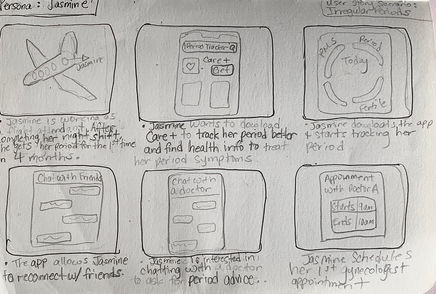 Persona: Jasmine
User Story Scenario:
Irregular Periods
Jasmine
Period Tracker
Care+
Get
PMS
Period
Today
Fertile
Jasmine is working as
a flight attendant. After
completing her night shift,
she gets her period for the 1st time
in 4 months.
• Jasmine wants to download
Care+ to track her period better
and find health info to treat
her period symptoms.
Jasmine downloads the app
+ starts tracking her
period
Chat with friends
• The app allows Jasmine
to reconnect w/ friends.
Chat with
a doctor
Jasmine is interested in
chatting with a doctor
to ask for period advice.
Appointment
with Doctor A
Starts 9am
Ends 10am
Jasmine schedules
her 1st gynecologist
appointment